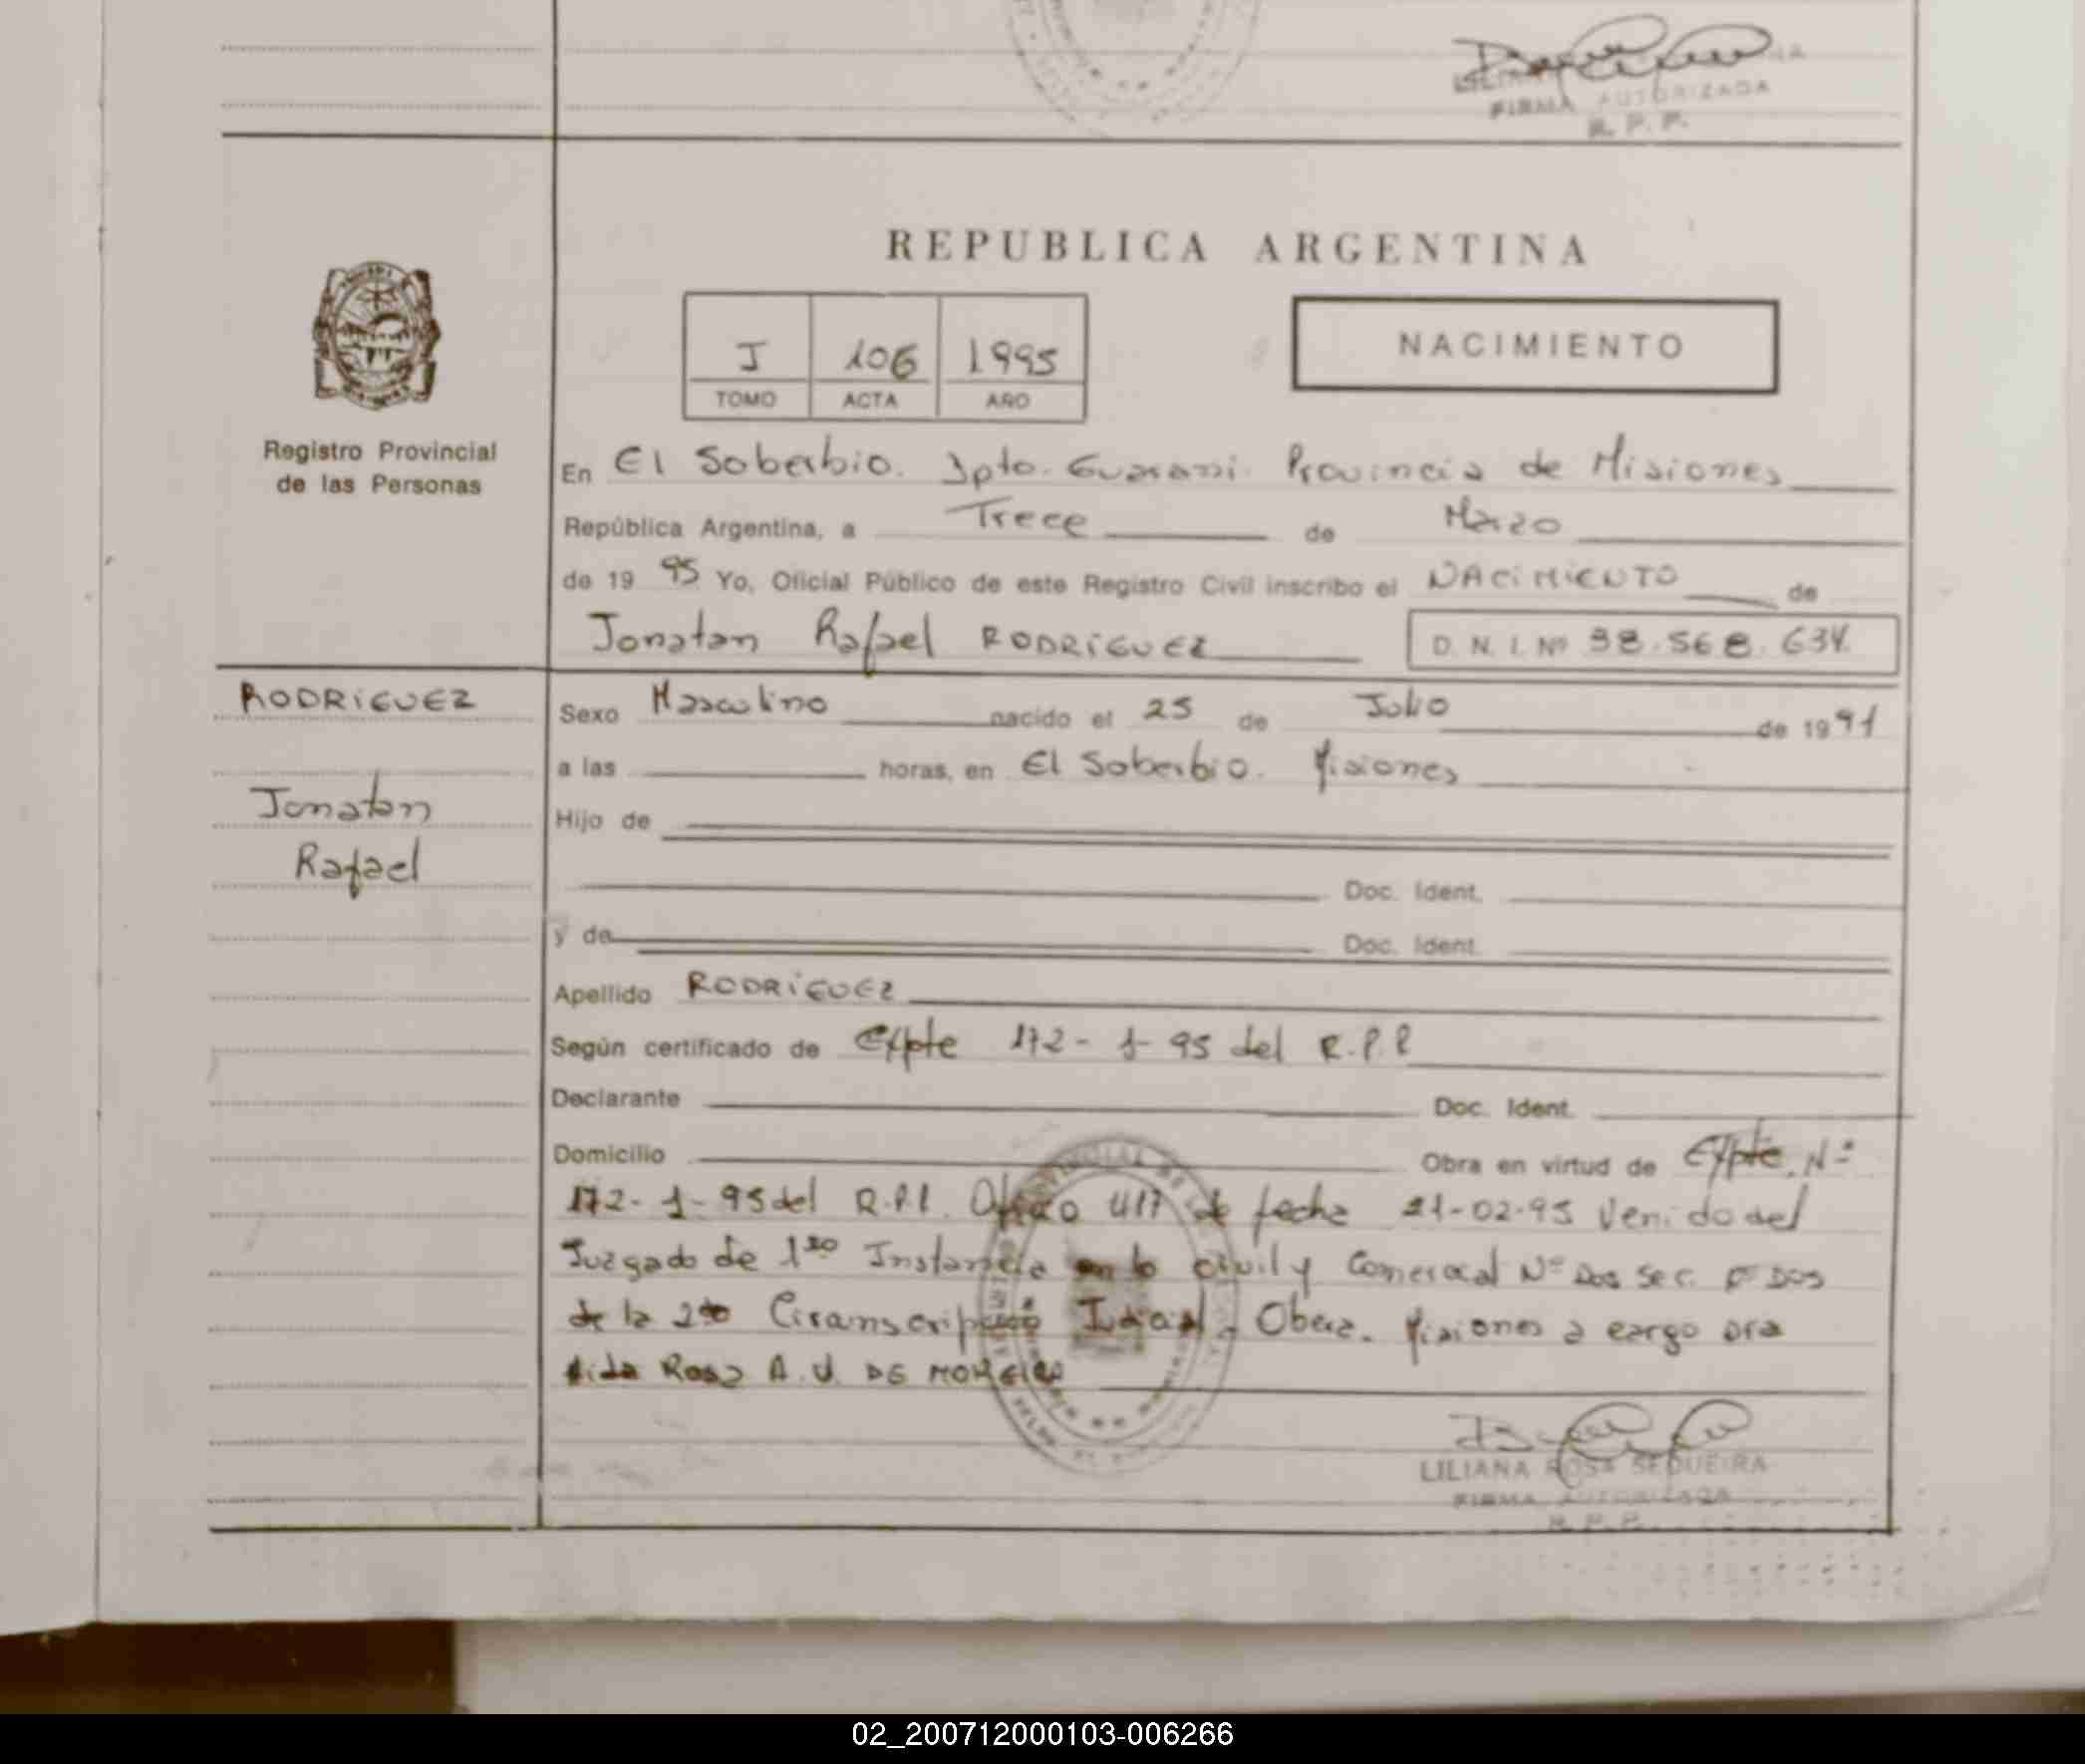 FIRMA AUTORIZADA
R. P. P.
REPUBLICA ARGENTINA
NACIMIENTO
I 106 1995
TOMO ACTA AÑO
Registro Provincial
de las Personas
En El Soberbio. Dpto. Guarani. Provincia de Misiones
República Argentina, a Trece de Marzo
de 19 95 Yo, Oficial Público de este Registro Civil inscribo el NACIMIENTO de
Jonatan Rafael RODRIGUEZ D. N. I. Nº 38.568.634
RODRIGUEZ
Jonatan
Rafael
Sexo Masculino nacido el 25 de Julio de 1991
a las horas, en El Soberbio. Misiones
Hijo de
Doc. Ident.
y de Doc. Ident.
Apellido RODRIGUEZ
Según certificado de Expte 172-1-95 del R.P.P
Declarante Doc. Ident.
Domicilio Obra en virtud de Expte. Nº
172-1-95 del R.P.P. Oficio 417 de fecha 21-02-95 Venido del
Juzgado de 1ra Instancia en lo civil y Comercial Nº Dos Sec. Nº Dos
de la 2da Circunscripción Judicial. Obera. Misiones a cargo Dra
Aida Rosa A. V. DE MOREIRA
LILIANA ROSA SEQUEIRA
FIRMA AUTORIZADA
R. P. P.
02_200712000103-006266